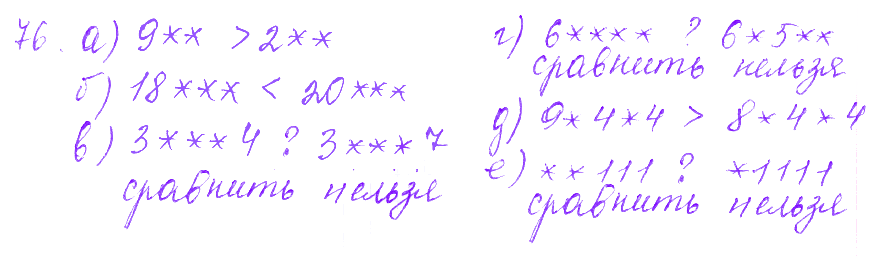 76. а) 9** > 2**
б) 18*** < 20***
в) 3***4 ? 3***7
сравнить нельзя
г) 6**** ? 6*5**
сравнить нельзя
д) 9*4*4 > 8*4*4
е) **111 ? *1111
сравнить нельзя